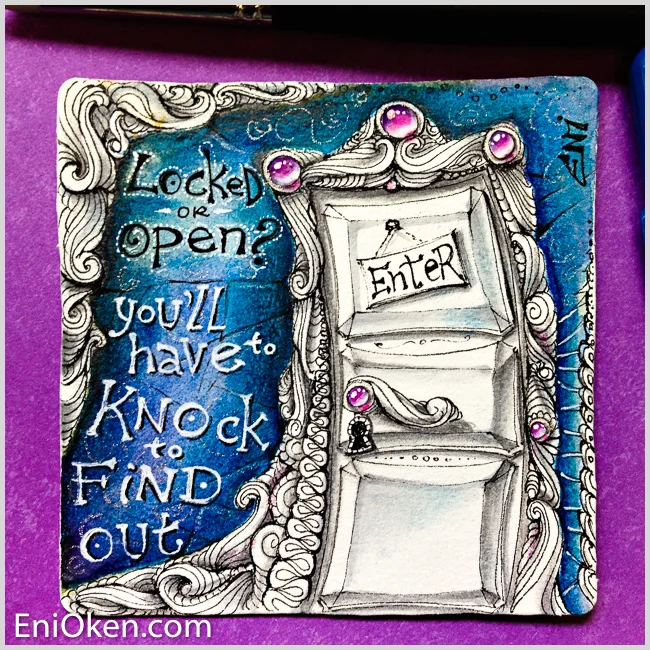 LOCKED
OR
OPEN?
you'll
have to
KNOCK
to
FiND
out
ENTER
ENI.
EniOken.com